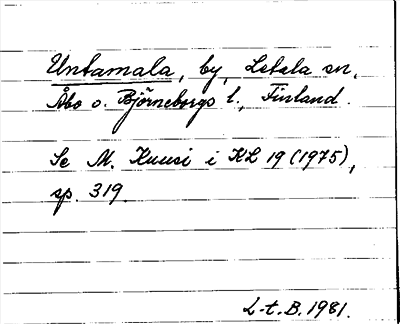 Untamala, by, Letala sn,
Åbo o. Björneborgs l., Finland.
Se M. Kuusi i KL 19 (1975),
sp. 319.
L-t. B. 1981.